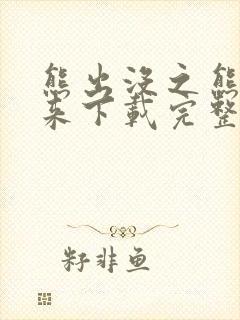 熊出没之熊
来下载完整
籽非鱼